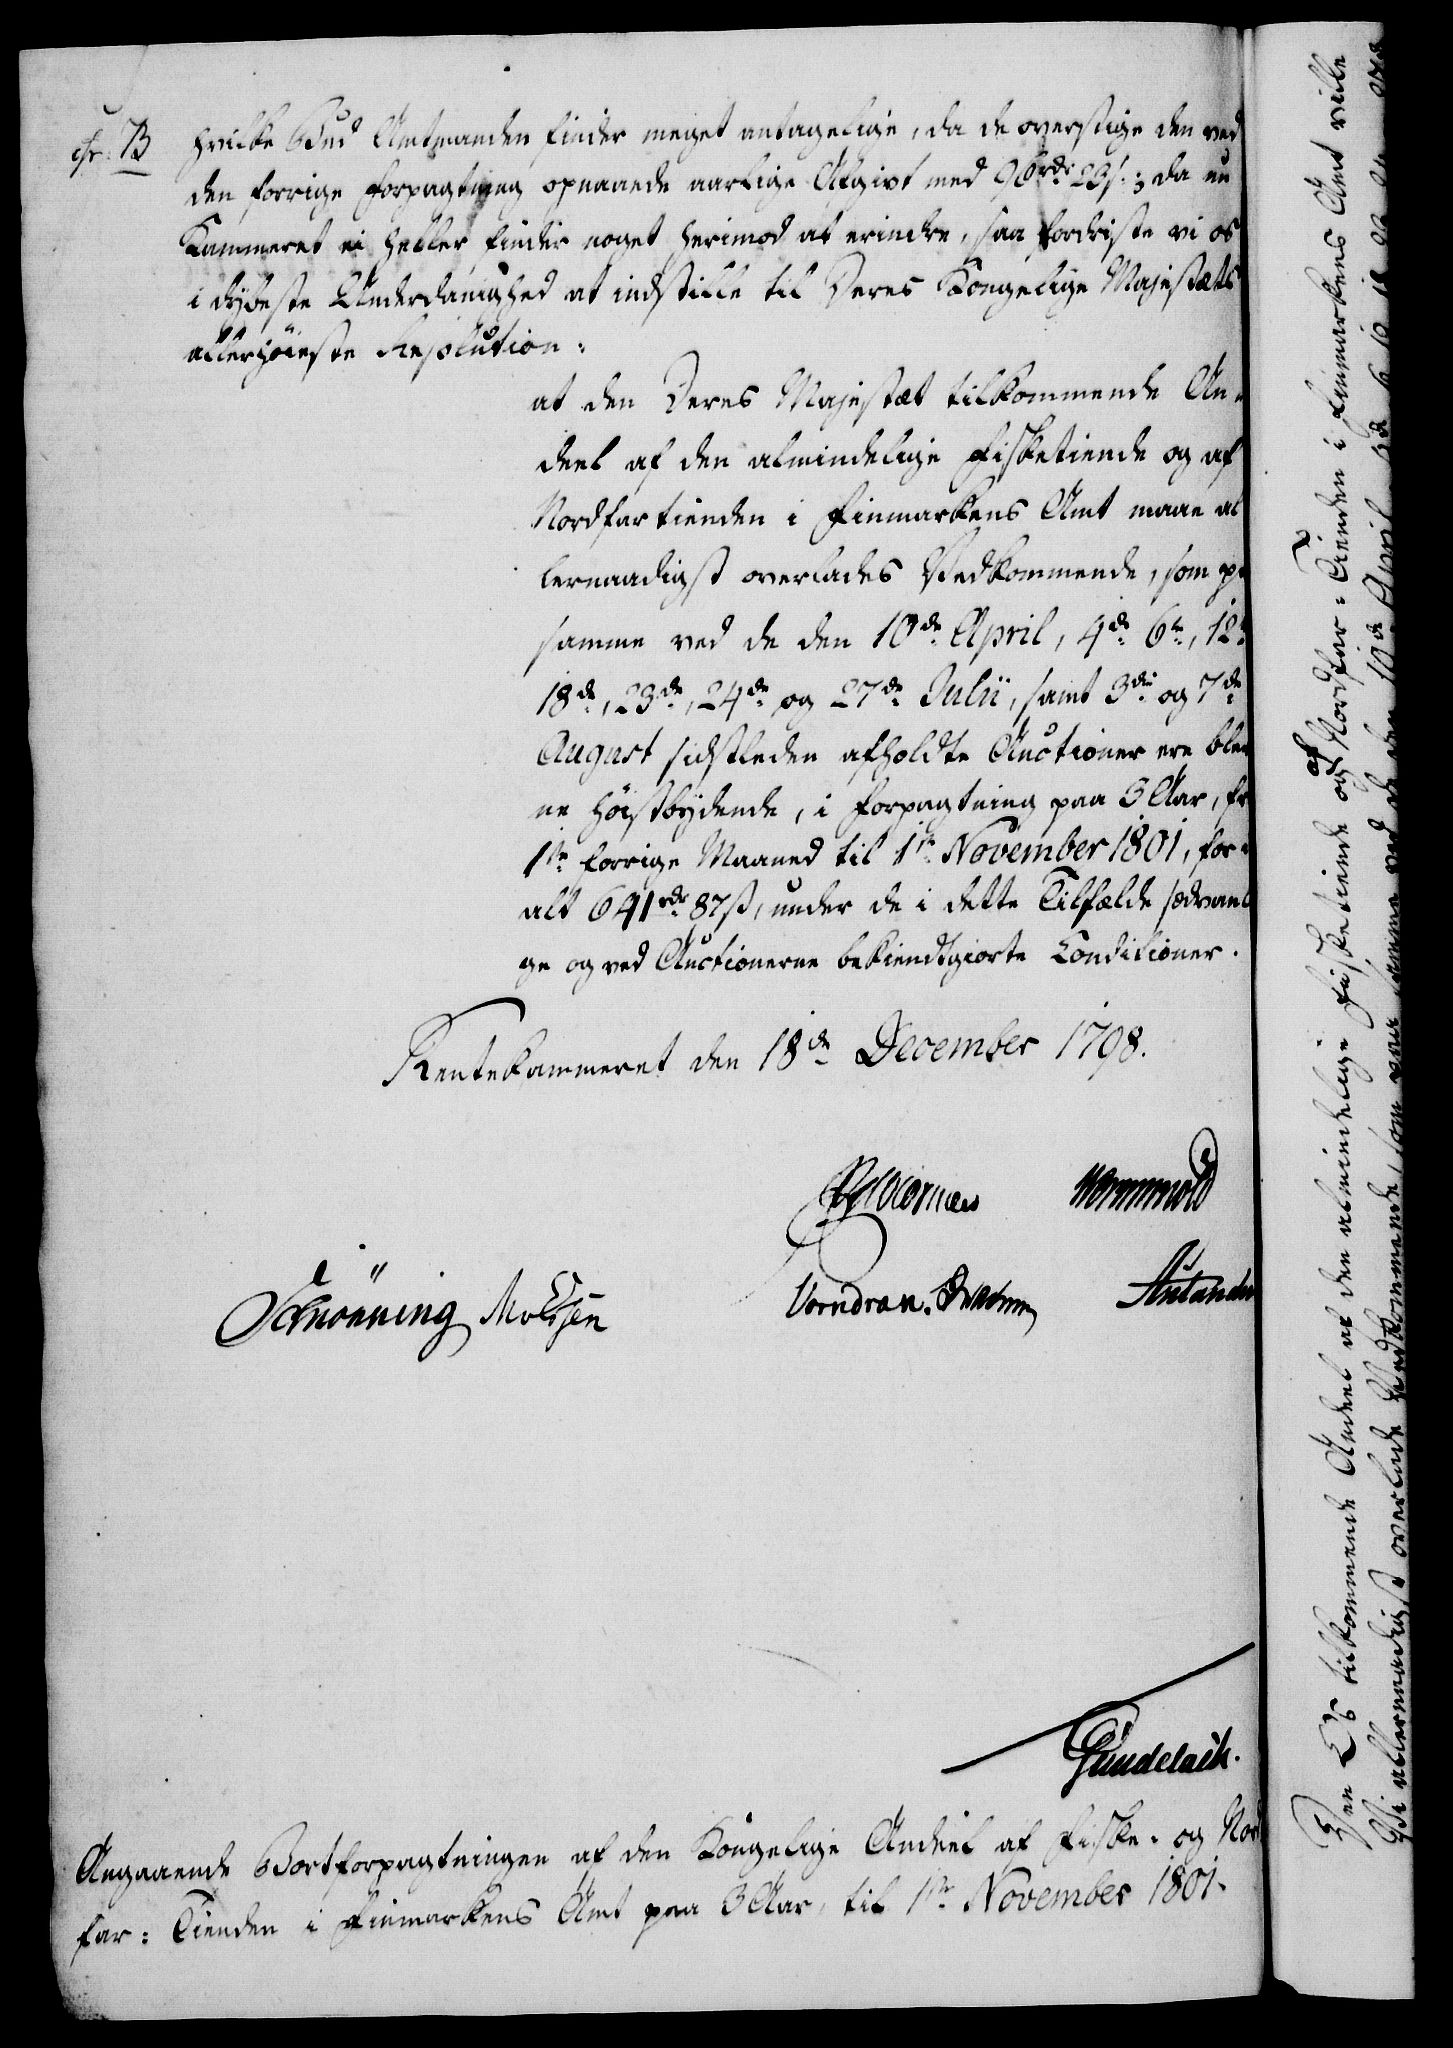 cfr. B
hvilke Bud Amtmanden finder meget antagelige, da de overstige den ved
den forrige Forpagtning opnaaede aarlige Afgivt med 96 rdr 23 s.; da nu
Kammeret ei heller finder noget herimod at erindre, saa fordriste vi os
i dybeste Underdanighed at indstille til Deres Kongelige Majestæts
allerhøieste Resolution:
at den Deres Majestæt tilkommende An-
deel af den almindelige Fisketiende og af
Nordfartienden i Finmarkens Amt maae al
lernaadigst overlades Vedkommende, som p
samme ved de den 10de April, 4de 6te, 12
18de, 23de, 24de og 27de Julii, samt 3die og 7de
August sidstleden afholdte Auctioner ere blev
ne høistbydende, i Forpagtning paa 3 Aar, fr
1ste forrige Maaned til 1ste November 1801, for
alt 641 rdr 87 ß, under de i dette Tilfælde sædvanl
ge og ved Auctionerne bekiendtgiorte Conditioner.
Rentekammeret den 18de December 1798.
Wormskiold
Schiønning Moltzen Vorndran. Antandr
Gundelach.
Angaaende Bortforpagtningen af den Kongelige Andeel af Fiske- og Nord
far-Tienden i Finmarkens Amt paa 3 Aar, til 1ste November 1801.
Den Os tilkommende Andeel af den almindelige Fisketiende og af Nordfar-Tienden i Finmarkens Amt ville
Vi allernaadigst overlade Vedkommende, som paa samme ved de den 10de April